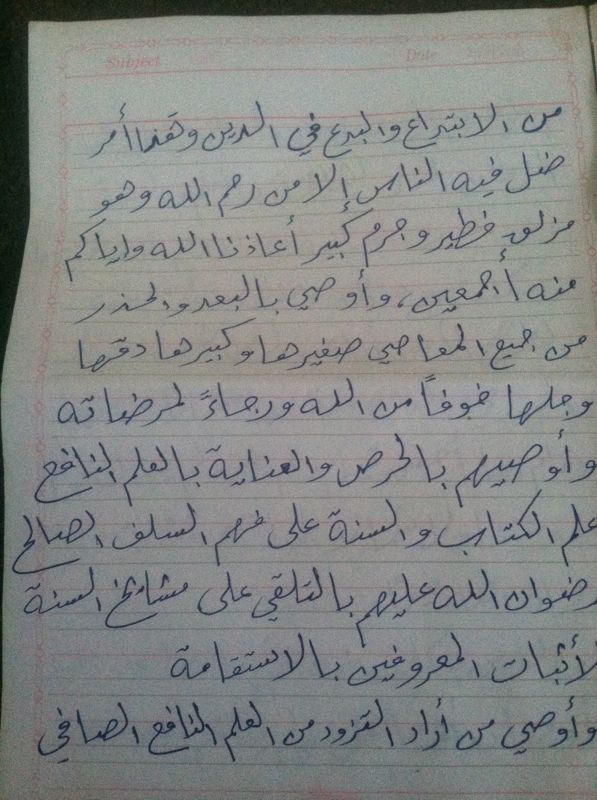 Subject
Date
من الابتداع والبدع في الدين وهذا أمر
ضل فيه الناس إلا من رحم الله وهو
مزلق خطير وجرم كبير أعاذنا الله وإياكم
منه أجمعين، وأوصي بالبعد والحذر
من جميع المعاصي صغيرها وكبيرها دقها
وجلها خوفاً من الله ورجاءً لمرضاته
وأوصيهم بالحرص والعناية بالعلم النافع
علم الكتاب والسنة على فهم السلف الصالح
رضوان الله عليهم بالتلقي على مشائخ السنة
الأثبات المعروفين بالاستقامة
وأوصي من أراد التزود من العلم النافع الصافي